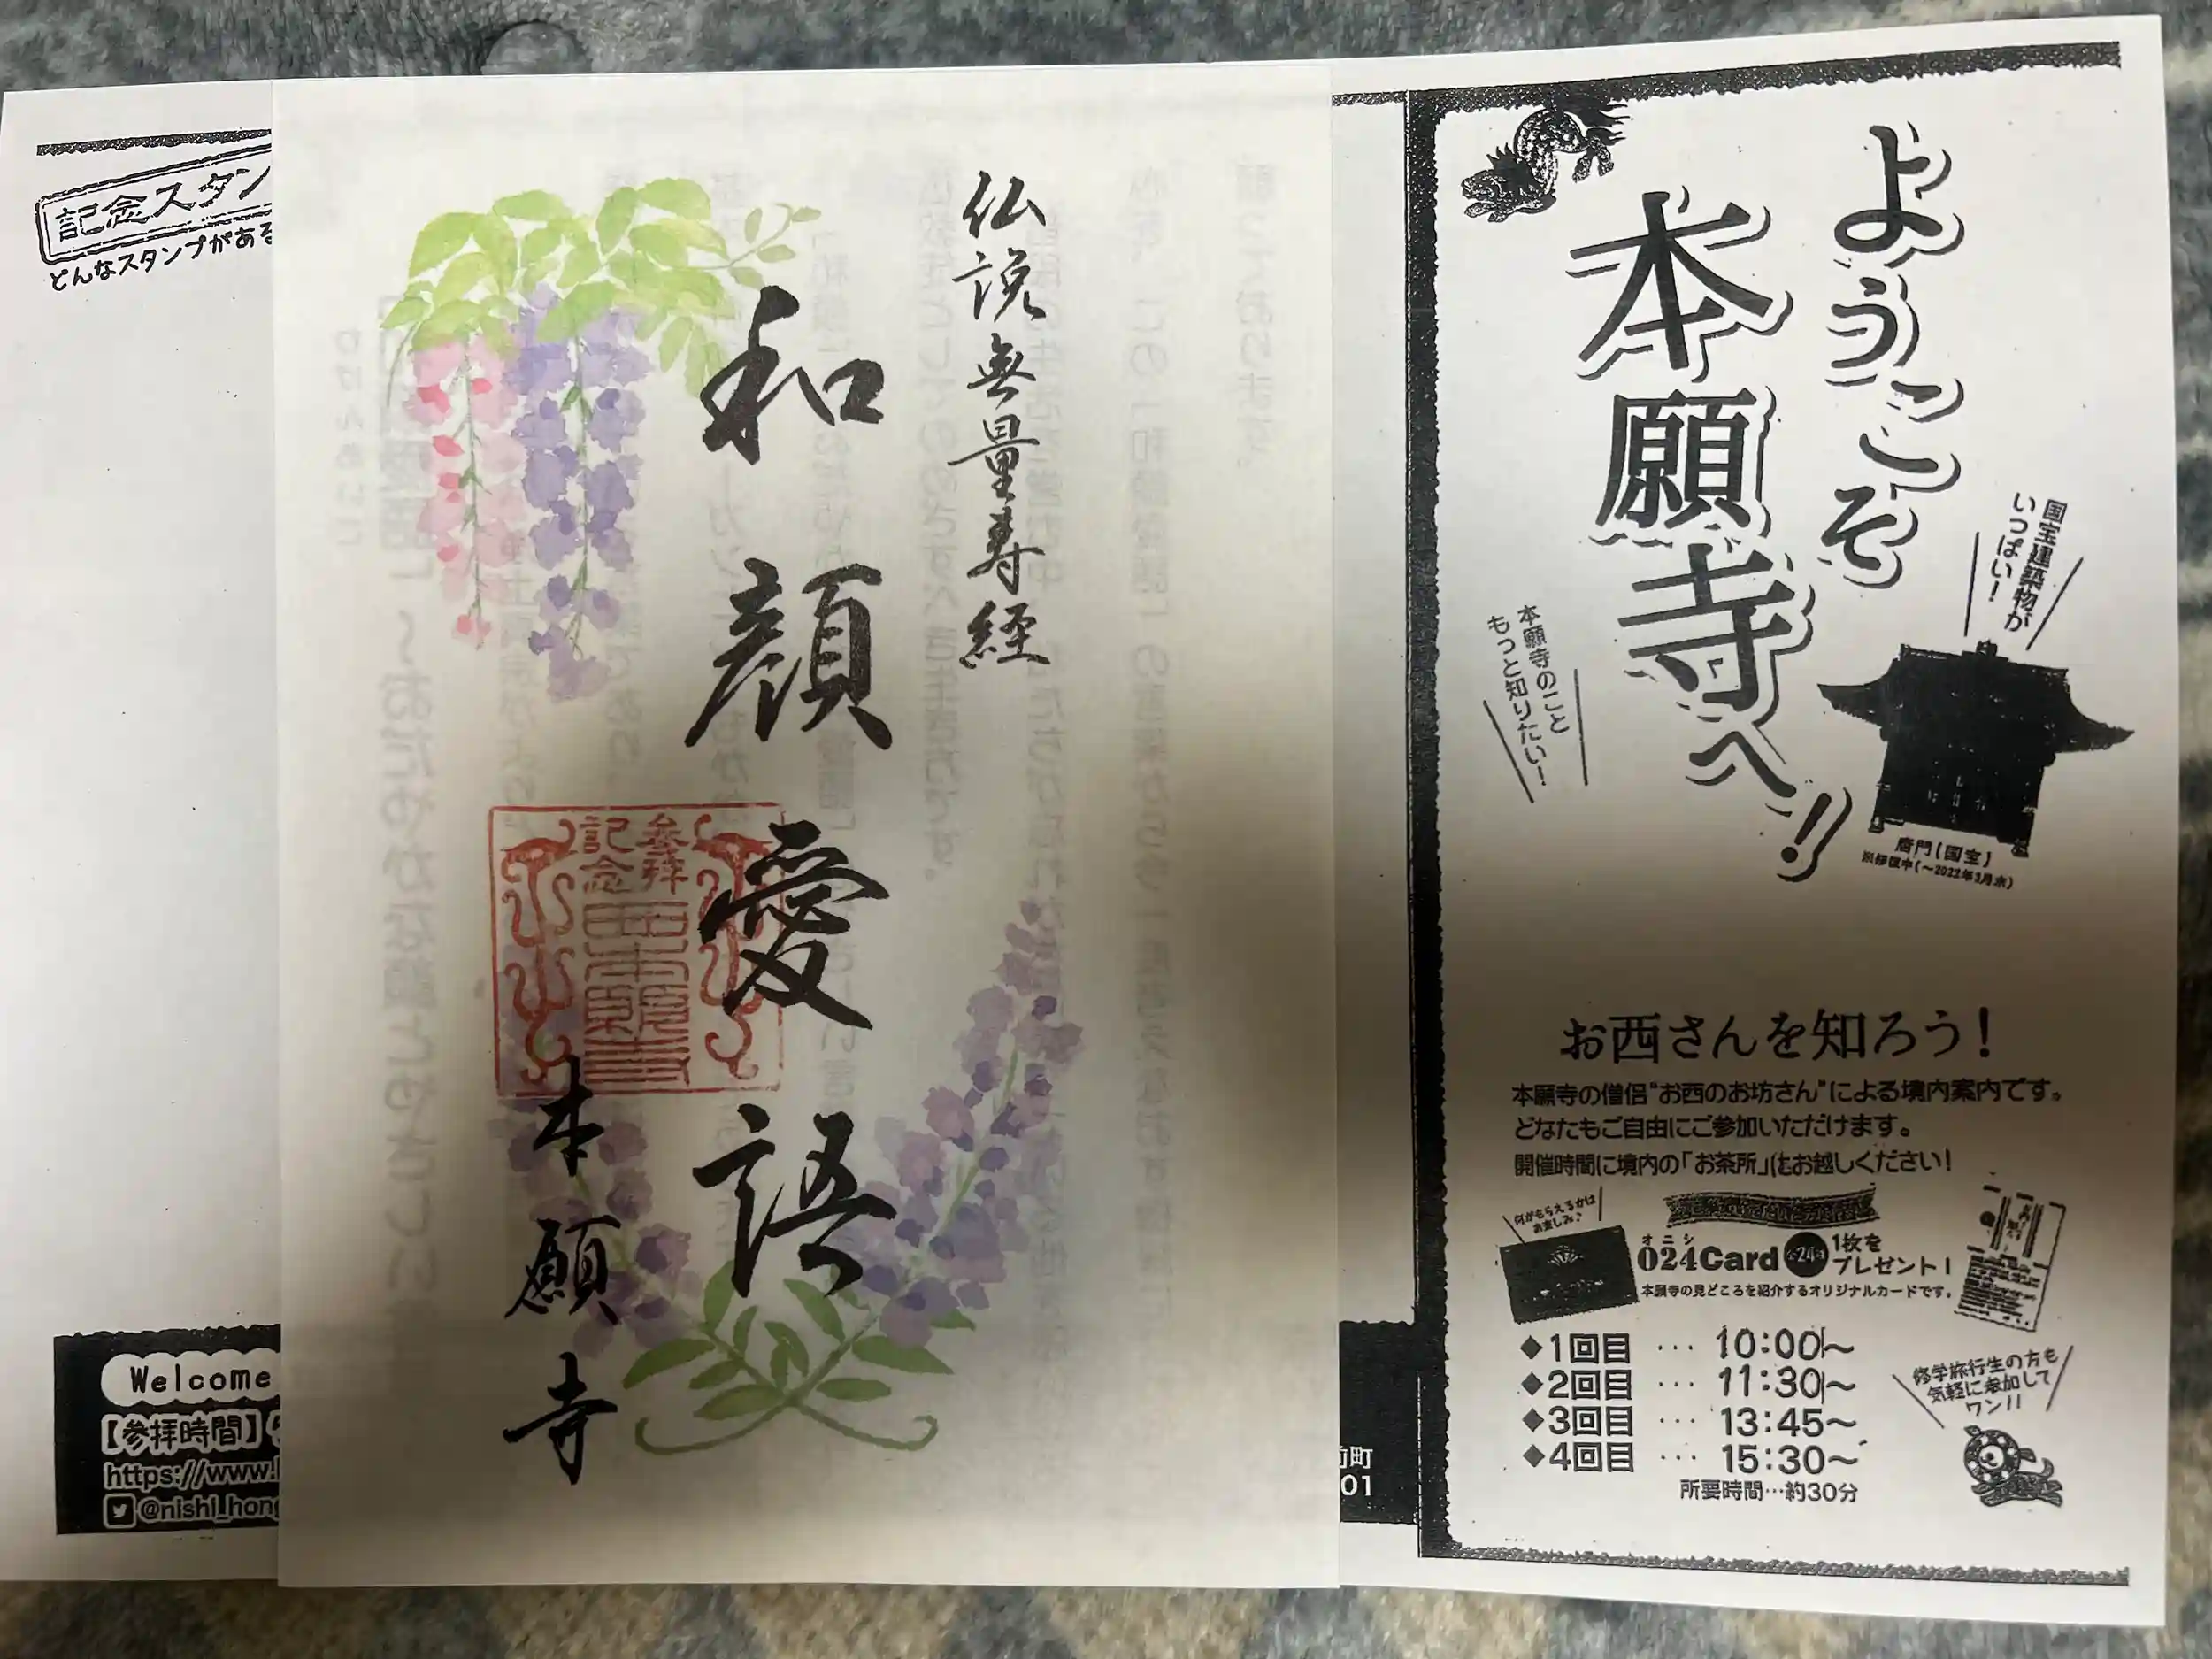 記念スタン
どんなスタンプがある
Welcome
【参拝時間】5
https://www.
@nishi_hong
仏説無量寿経
和顔愛語
参拝
記念
本願寺
前町
01
ようこそ
本願寺へ!!
国宝建築物が
いっぱい!
本願寺のこと
もっと知りたい!
唐門(国宝)
※修復中(~2022年3月末)
お西さんを知ろう!
本願寺の僧侶"お西のお坊さん"による境内案内です。
どなたもご自由にご参加いただけます。
開催時間に境内の「お茶所」にお越しください!
何がもらえるかは
お楽しみ♪
オニシ
024Card 全24種 1枚を
プレゼント!
本願寺の見どころを紹介するオリジナルカードです。
◆1回目 … 10:00~
◆2回目 … 11:30~
◆3回目 … 13:45~
◆4回目 … 15:30~
所要時間…約30分
修学旅行生の方も
気軽に参加して
ワン!!